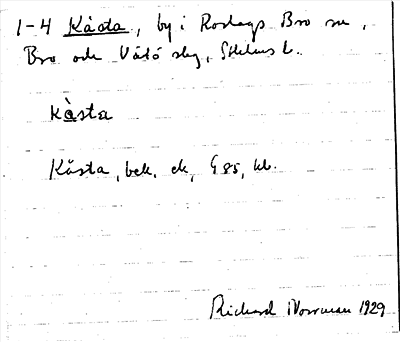 1-4 Kåsta, by i Roslags Bro sn,
Bro och Vätö slg, Sthlms l.
Kàsta
Kåsta, bek. ek, G 85, kl.
Richard Norrman 1929